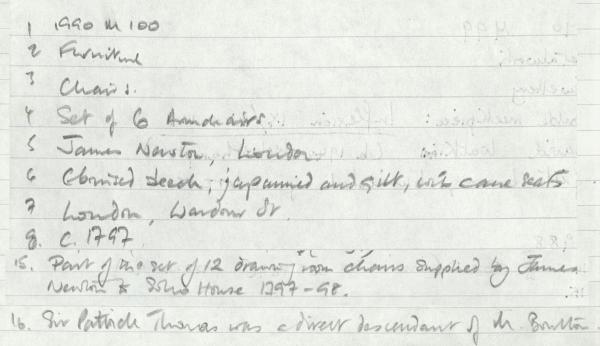 1 1990 M 100
2 Furniture
3 Chairs.
4 Set of 6 Armchairs
5 James Newton London
6 Ebonised beech, japanned and gilt, with cane seats
7 London, Wardour St.
8. C. 1797
15. Part of the set of 12 drawing room chairs supplied by James
Newton to Soho House 1797-98.
16. Sir Patrick Thomas was a direct descendant of M. Boulton.